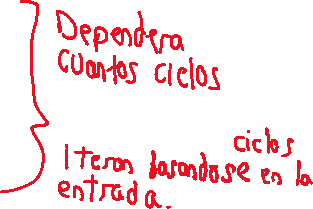 Dependera
cuantos ciclos
ciclos
Iteran basandose en la
entrada.